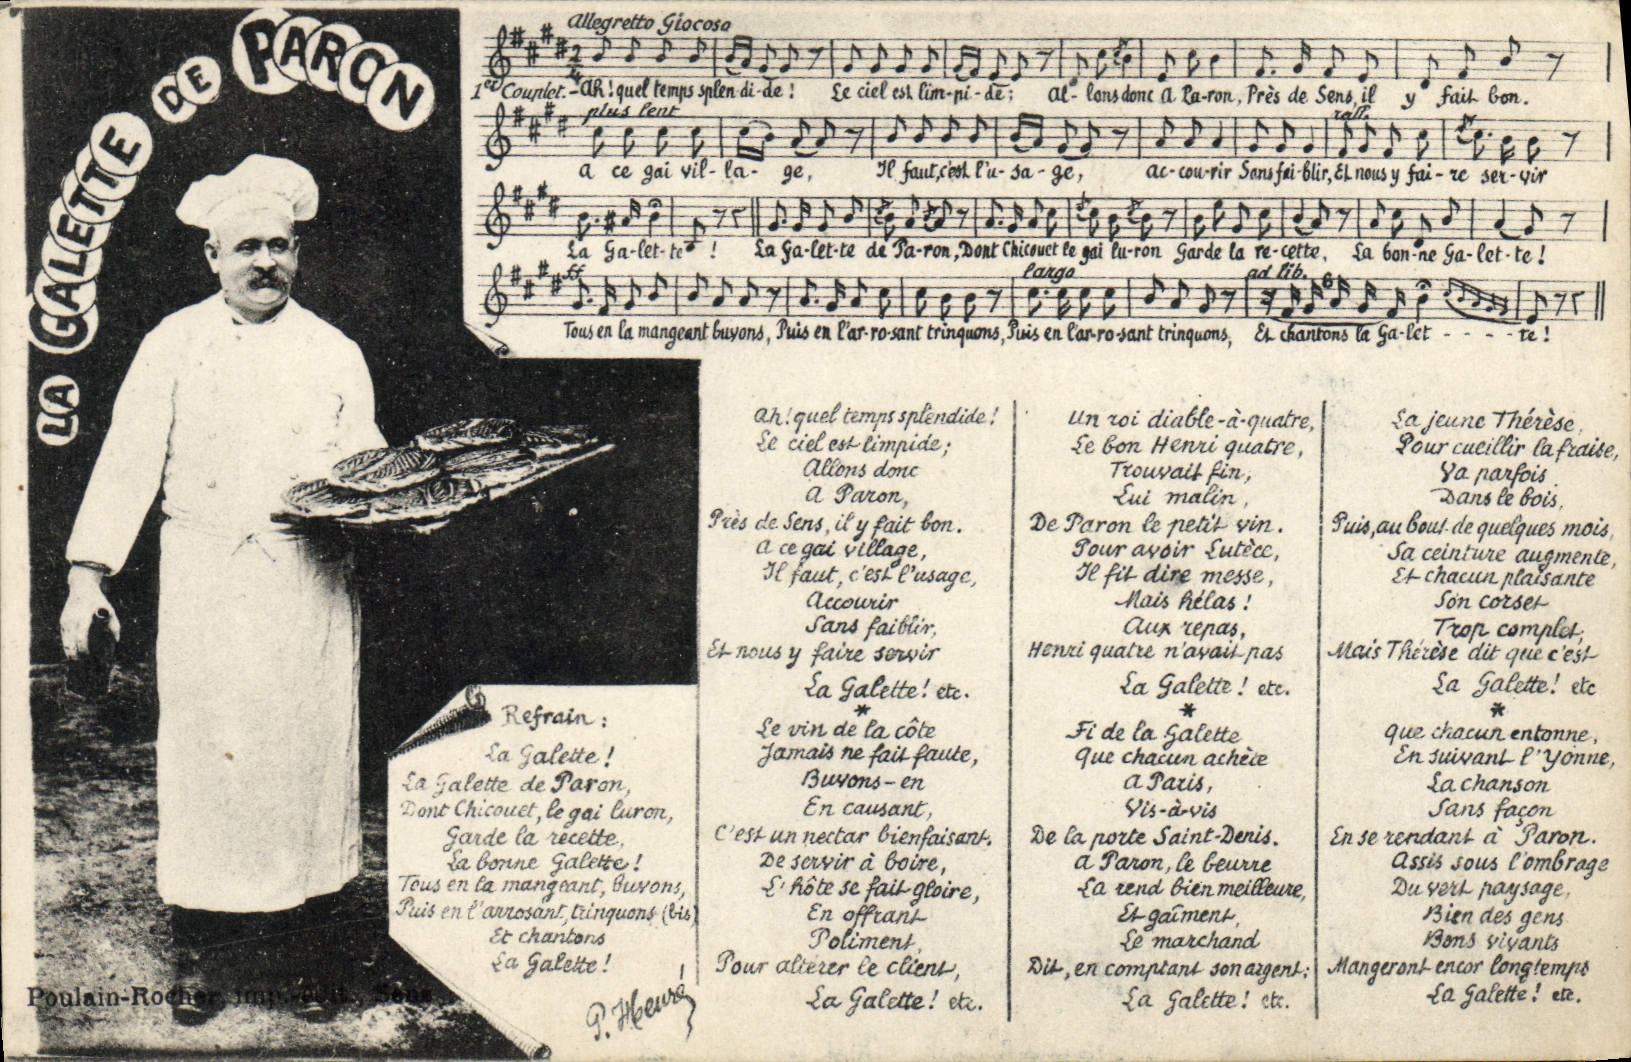 LA GALETTE DE PARON
Allegretto Giocoso
1er Couplet. - Ah! quel temps splen-di-de! Le ciel est lim-pi-de; Al-lons donc A Pa-ron, Près de Sens, il y fait bon.
plus lent
rall.
A ce gai vil-la-ge, Il faut, c'est l'u-sa-ge, ac-cou-rir Sans fai-blir, Et nous y fai-re ser-vir
La Ga-let-te! La Ga-let-te de Pa-ron, Dont Chicouet le gai lu-ron Garde la re-cette, La bon-ne Ga-let-te!
ff
largo
ad lib.
6
Tous en la mangeant buvons, Puis en l'ar-ro-sant trinquons, Puis en l'ar-ro-sant trinquons, Et chantons la Ga-let - - - - te!
Refrain:
La Galette!
La Galette de Paron,
Dont Chicouet, le gai luron,
Garde la recette,
La bonne Galette!
Tous en la mangeant, buvons,
Puis en l'arrosant, trinquons (bis)
Et chantons
La Galette!
P. Heuré
Poulain-Rocher, imp.-édit., Sens
Ah! quel temps splendide!
Le ciel est limpide;
Allons donc
A Paron,
Près de Sens, il y fait bon.
A ce gai village,
Il faut, c'est l'usage,
Accourir
Sans faiblir,
Et nous y faire servir
La Galette! etc.
*
Le vin de la côte
Jamais ne fait faute,
Buvons-en
En causant,
C'est un nectar bienfaisant.
De servir à boire,
L'hôte se fait gloire,
En offrant
Poliment,
Pour altérer le client,
La Galette! etc.
Un roi diable-à-quatre,
Le bon Henri quatre,
Trouvait fin,
Lui malin,
De Paron le petit vin.
Pour avoir Lutèce,
Il fit dire messe,
Mais hélas!
Aux repas,
Henri quatre n'avait pas
La Galette! etc.
*
Fi de la Galette
Que chacun achète
A Paris,
Vis-à-vis
De la porte Saint-Denis.
A Paron, le beurre
La rend bien meilleure,
Et gaîment,
Le marchand
Dit, en comptant son argent:
La Galette! etc.
La jeune Thérèse,
Pour cueillir la fraise,
Va parfois
Dans le bois,
Puis, au bout de quelques mois,
Sa ceinture augmente,
Et chacun plaisante
Son corset
Trop complet;
Mais Thérèse dit que c'est
La Galette! etc
*
Que chacun entonne,
En suivant l'Yonne,
La chanson
Sans façon
En se rendant à Paron.
Assis sous l'ombrage
Du vert paysage,
Bien des gens
Bons vivants
Mangeront encor longtemps
La Galette! etc.